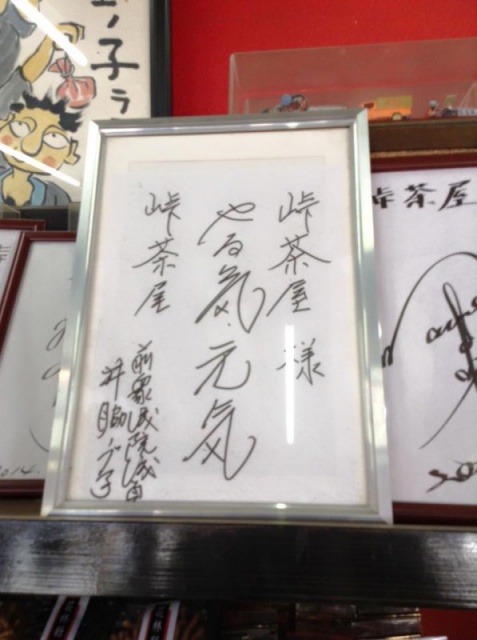 峠茶屋様
やる気、元気
峠茶屋
前衆議院議員
井脇ノブ子
峠茶屋
2014.
ノ子ラ